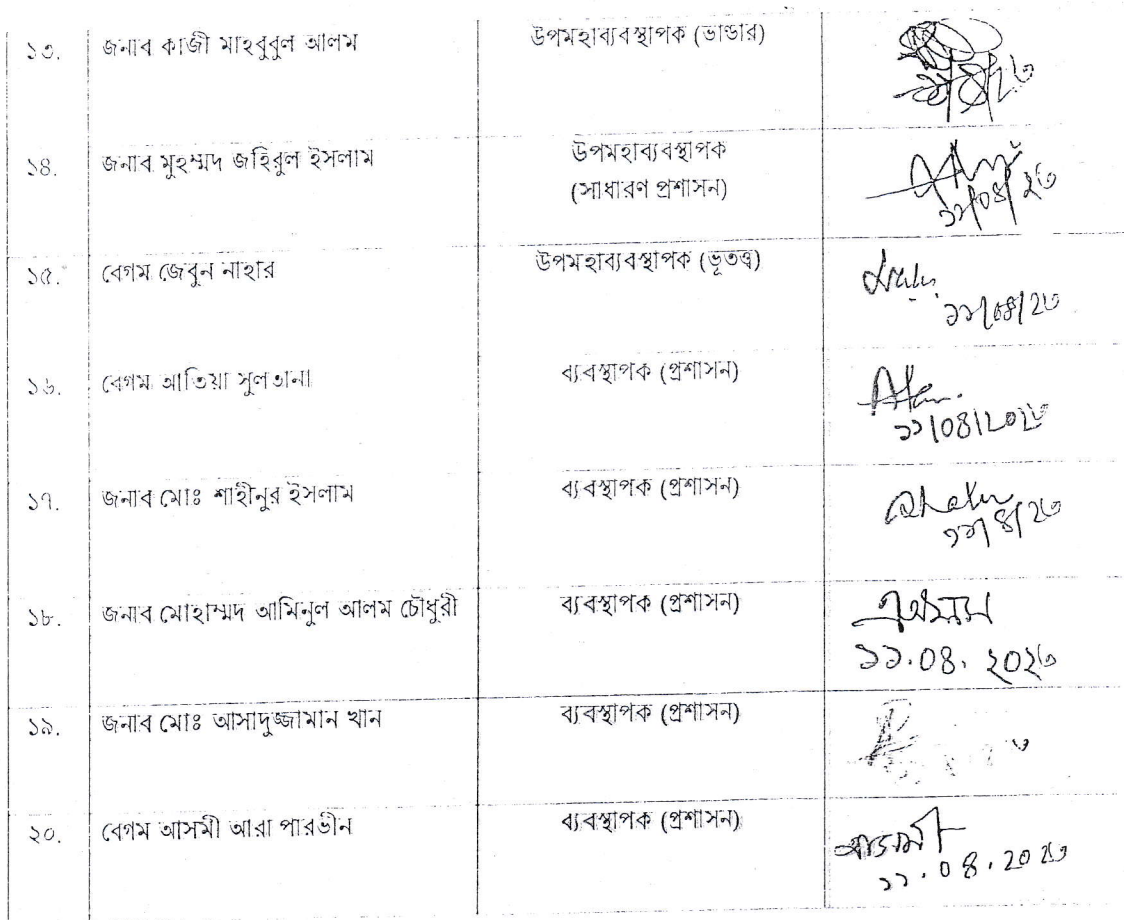 ১৩. জনাব কাজী মাহবুবুল আলম উপমহাব্যবস্থাপক (ভান্ডার)
১৪. জনাব মুহম্মদ জহিরুল ইসলাম উপমহাব্যবস্থাপক
(সাধারণ প্রশাসন)
১১/০৪/২৩
১৫. বেগম জেবুন নাহার উপমহাব্যবস্থাপক (ভূতত্ত্ব)
১১/০৪/২৩
১৬. বেগম আতিয়া সুলতানা ব্যবস্থাপক (প্রশাসন)
১১/০৪/২০২৩
১৭. জনাব মোঃ শাহীনুর ইসলাম ব্যবস্থাপক (প্রশাসন)
১১/৪/২৩
১৮. জনাব মোহাম্মদ আমিনুল আলম চৌধুরী ব্যবস্থাপক (প্রশাসন)
১১.০৪.২০২৩
১৯. জনাব মোঃ আসাদুজ্জামান খান ব্যবস্থাপক (প্রশাসন)
২০. বেগম আসমী আরা পারভীন ব্যবস্থাপক (প্রশাসন)
১১.০৪.২০২৩